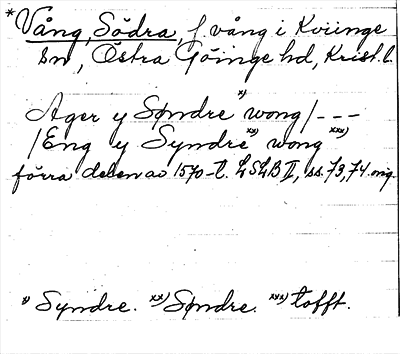 *Vång, Södra, f. vång i Kviinge
sn, Östra Göinge hd, Krist. l.
Ager y Søndre *) wong/---
/Eng y Syndre **) wong ***)
förra delen av 1570-t. LSLB II, ss. 73, 74. orig.
*) Syndre. **) Søndre. ***) tofft.